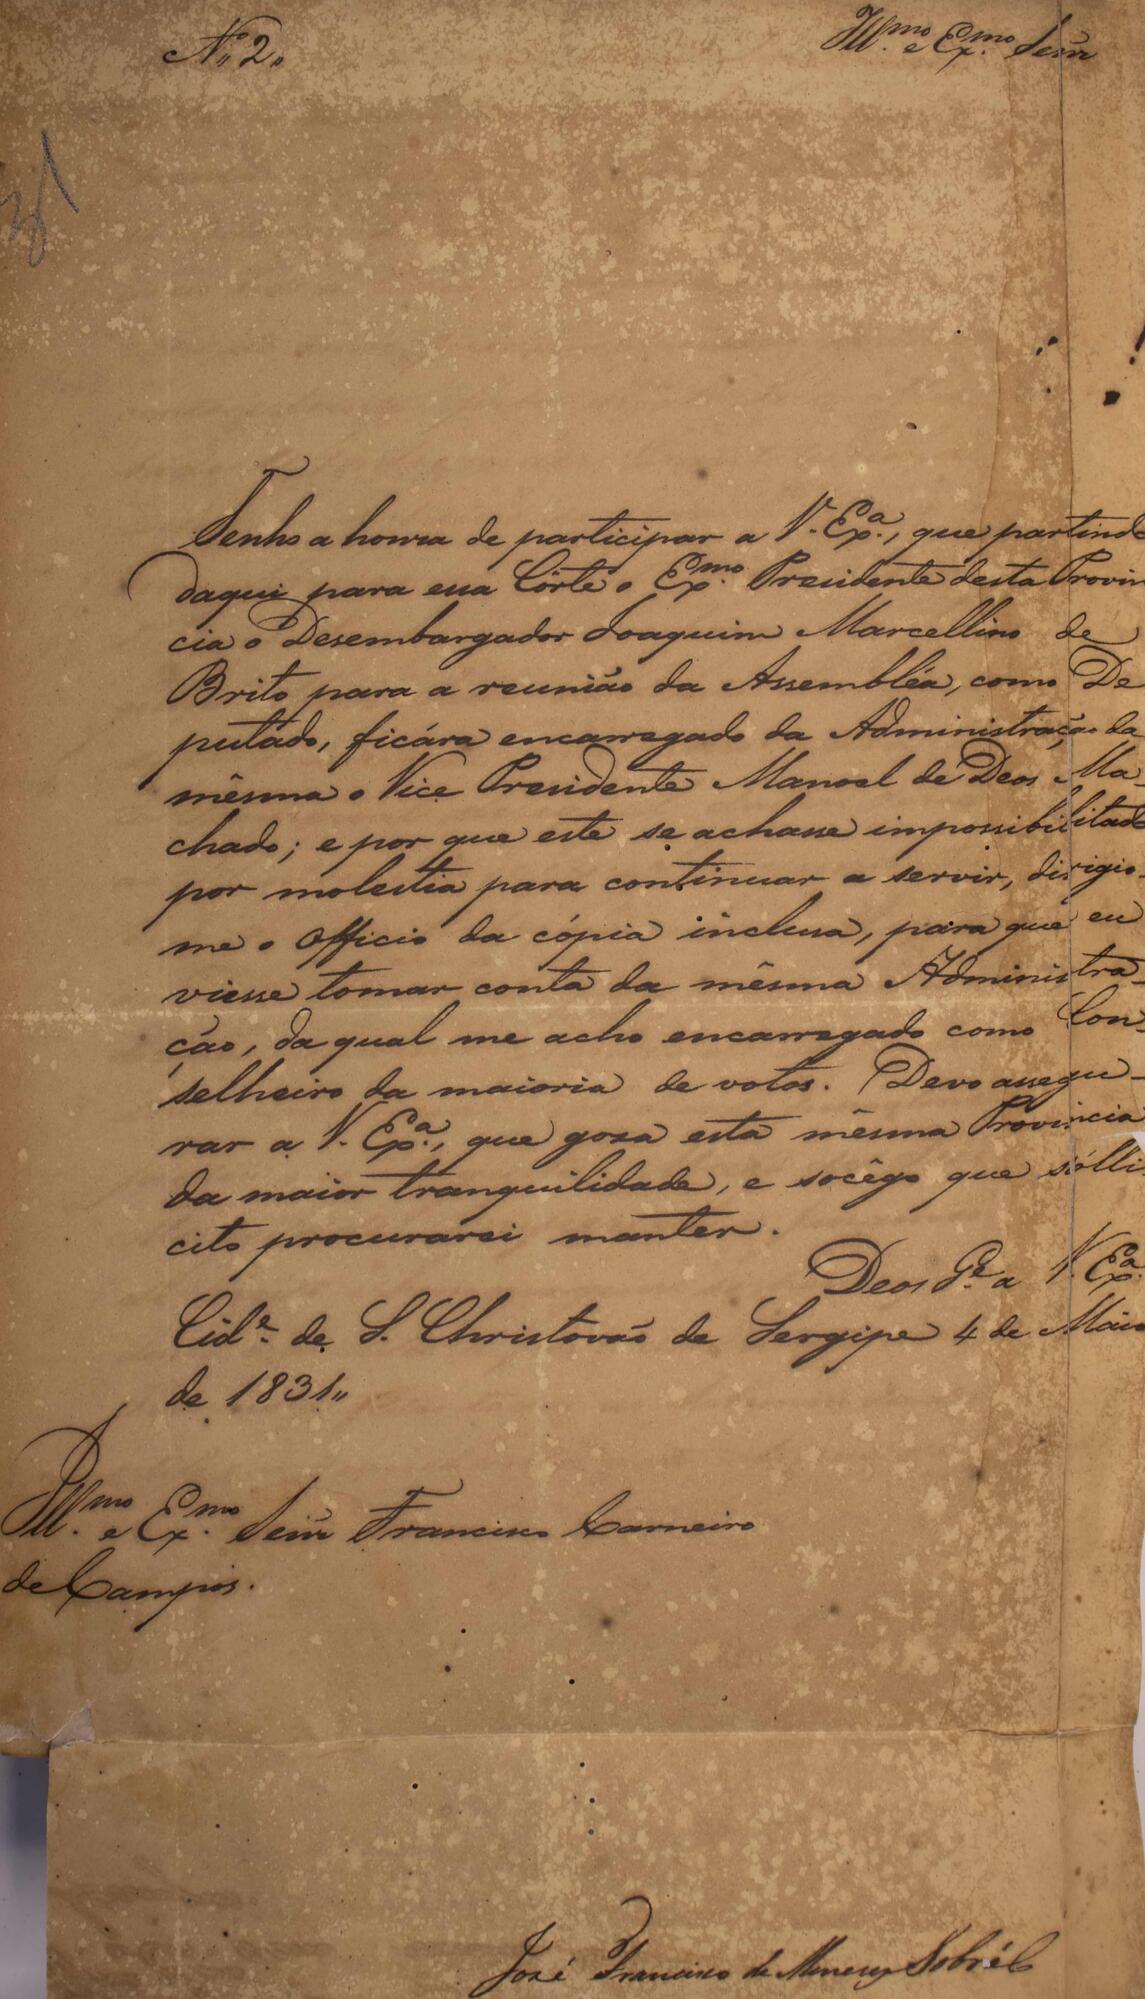 N. 2.
Ill.mo e Ex.mo Senr
Tenho a honra de participar a V. Ex.a, que partindo
daqui para essa Côrte o Ex.mo Presidente desta Provin
cia o Desembargador Joaquim Marcellino de
Brito para a reunião da Assembléa, como De
putádo, ficára encarregado da Administração da
mêsma o Vice Presidente Manoel de Deos Ma-
chado; e por que este se achasse impossibilitado
por molestia para continuar a servir, dirigio-
me o Officio da cópia inclusa, para que eu
viesse tomar conta da mêsma Administra-
ção, da qual me acho encarregado como Con-
selheiro da maioria de votos. Devo assegu-
rar a V. Ex.a, que gosa esta mêsma Provincia
da maior tranquilidade, e socêgo que sólli
cito procurarei manter.
Deos G.e a V. Ex.a
Cid.e de S. Christovão de Sergipe 4 de Maio
de 1831"
Ill.mo e Ex.mo Senr Francisco Carneiro
de Campos.
José Francisco de Menezes Sobrál